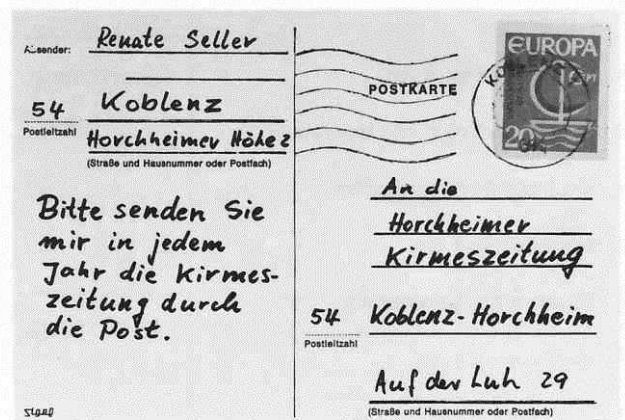 Absender: Renate Seller
54 Koblenz
Postleitzahl
Horchheimer Höhe 2
(Straße und Hausnummer oder Postfach)
Bitte senden Sie
mir in jedem
Jahr die Kirmes-
zeitung durch
die Post.
POSTKARTE
EUROPA
20
An die
Horchheimer
Kirmeszeitung
54 Koblenz-Horchheim
Postleitzahl
Auf der Luh 29
(Straße und Hausnummer oder Postfach)